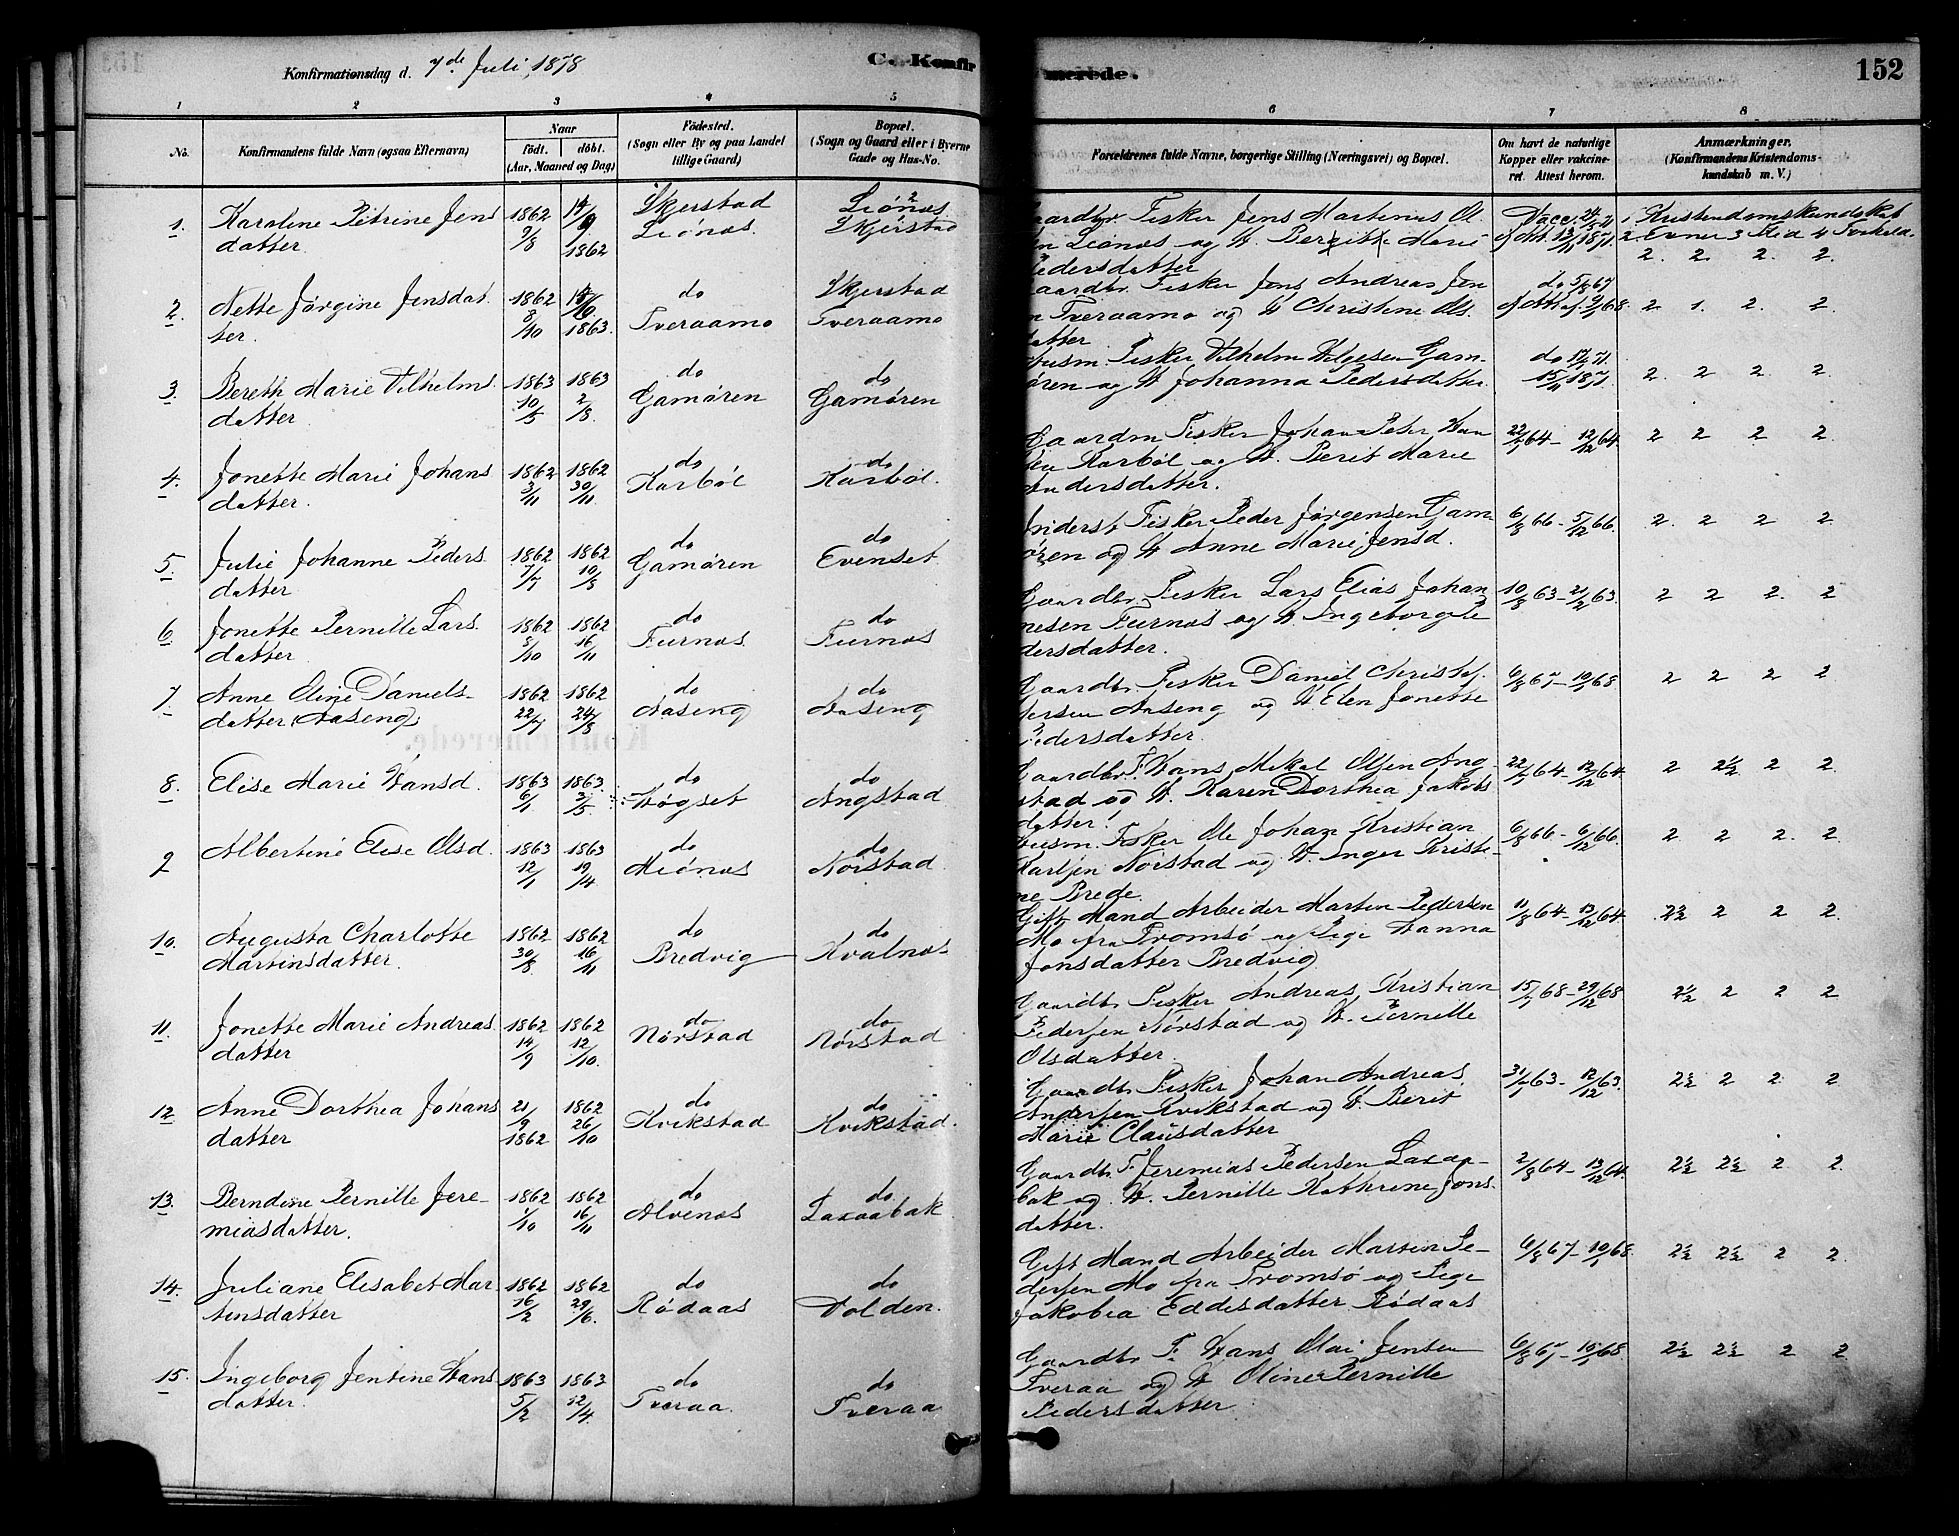 Konfirmationsdag d. 7de Juli 1878
C. Konfirmerede.
152
1 2 3 4 5 6 7 8
No.
Konfirmandens fulde Navn (ogsaa Efternavn)
Naar
födt. döbt.
(Aar, Maaned og Dag)
Födested.
(Sogn eller By og paa Landet
tillige Gaard)
Bopæl.
(Sogn og Gaard eller i Byerne
Gade og Hus-No.
Forældrenes fulde Navne, borgerlige Stilling (Næringsvei) og Bopæl.
Om havt de naturlige
Kopper eller vakcine-
ret. Attest herom.
Anmærkninger.
(Konfirmandens Kristendoms-
kundskab m. V.)
1. Karoline Petrine Jens
datter
1862 9/8
1862
Skjerstad
Liønæs
Liønæs
Skjerstad
Fisker Jens Martinius Ol-
Liønæs og H. Berit Marie
Pedersdatter
1 Kristendomskundskab
2 Evner 3 Flid 4 Forhold.
2. 2. 2. 2.
2. Nette Jørgine Jensdat
ter.
1862 8/10
1863.
do
Tveraamo
Skjerstad
Tveraamo
Fisker Jens Andreas Jen
Tveraamo og H Christine Ols
datter
do 5/8 67
2 1. 2. 2
3. Bereth Marie Vilhelms
datter
1863 10/5
1863 2/8
do
Gamøren
do
Gamøren
Husm. Fisker Vilhelm Helgesen Gam-
øren og H Johanna Pedersdatter
2. 2 2 2.
4. Jonette Marie Johans
datter.
1862 3/11
1862 30/11
do
Karbøl
do
Karbøl.
Gaardm Fisker Johan Peter Han
sen Karbøl og H. Berit Marie
Andersdatter.
22/7 64 - 12/12 64
2 2 2 2.
5. Julie Johanne Peders
datter
1862 7/7
1862 10/8
do
Gamøren
do
Evenset
Inderst Fisker Peder Jørgensen Gam
øren og H Anne Marie Jensd.
6/8 66 - 5/12 66.
2. 2 2 2
6. Jonette Pernille Lars
datter
1862 8/10
1862 16/11
do
Furnæs
do
Furnæs
Gaardbr Fisker Lars Elias Johan
nesen Furnæs og H Ingeborg Pe
dersdatter.
10/8 63 - 21/12 63.
2 2 2. 2
7. Anne Oline Daniels
datter (Aaseng)
1862 22/7
1862 24/8
do
Aaseng
do
Aaseng
Gaardbr. Fisker Daniel Christof
fersen Aaseng og H Elen Jonette
Pedersdatter
6/8 67 - 10/1 68
2 2 2 2
8. Elise Marie Hansd.
1863 6/1
1863. 3/5
do
Høgset
do
Angstad
Gaardbr F. Hans Mikal Olsen Ang
stad og H. Karen Dorthea Jakobs
datter
22/7 64 - 12/12 64
2 2½ 2 2.
9 Albertine Elise Olsd.
1863 12/1
1863 19/4
do
Miønæs
do
Norstad
Husm. Fisker Ole Johan Kristian
Karlsen Norstad og H. Inger Kristi-
ne Brede.
6/8 66 - 6/12 66.
2 2 2. 2
10. Augusta Charlotte
Martinsdatter.
1862 30/8
1862 16/11
do
Bredvig
do
Kvalnæs
Gift Mand Arbeider Martin Pedersen
Mo fra Tromsø og Pige Hanna
Jonsdatter Bredvig
11/8 64 - 12/12 64
2½ 2 2 2.
11. Jonette Marie Andreas
datter
1862 14/9
1862 12/10.
do
Nørstad
do
Nørstad
Gaardbr Fisker Andreas Kristian
Pedersen Nørstad og H. Pernille
Olsdatter.
15/7 68 - 29/12 68
2½ 2 2 2
12. Anne Dorthea Johans
datter
21/9 1862
1862 26/10
do
Kvikstad
do
Kvikstad.
Gaardbr Fisker Johan Andreas
Andersen Kvikstad og H. Berit
Marie Clausdatter
31/7 63 - 12/12 63.
2½ 2 2 2
13. Berndine Pernille Jere-
miasdatter.
1862 1/10
1862 16/11
do
Alvenæs
do
Laxaabak
Gaardbr F. Jeremias Pedersen Laxaa-
bak og H. Pernille Kathrine Jons
datter.
2/8 64 - 13/12 64.
2½ 2½ 2 2.
14. Juliane Elisabet Mar
tinsdatter
1862 16/2
1862 29/6.
do
Rødaas
do
Volden.
Gift Mand Arbeider Martin Pe-
dersen Mo fra Tromsø og Pige
Jakobia Eddisdatter Rødaas
6/8 67 - 10/1 68.
2½ 2½ 2 2.
15. Ingeborg Jentine Hans
datter.
1863 5/2
1863 12/4.
do
Tveraa.
do
Tveraa
Gaardbr F. Hans Olai Jensen
Tveraa og H Oline Pernille
Pedersdatter
6/8 67 - 10/1 68
2½ 2½ 2 2